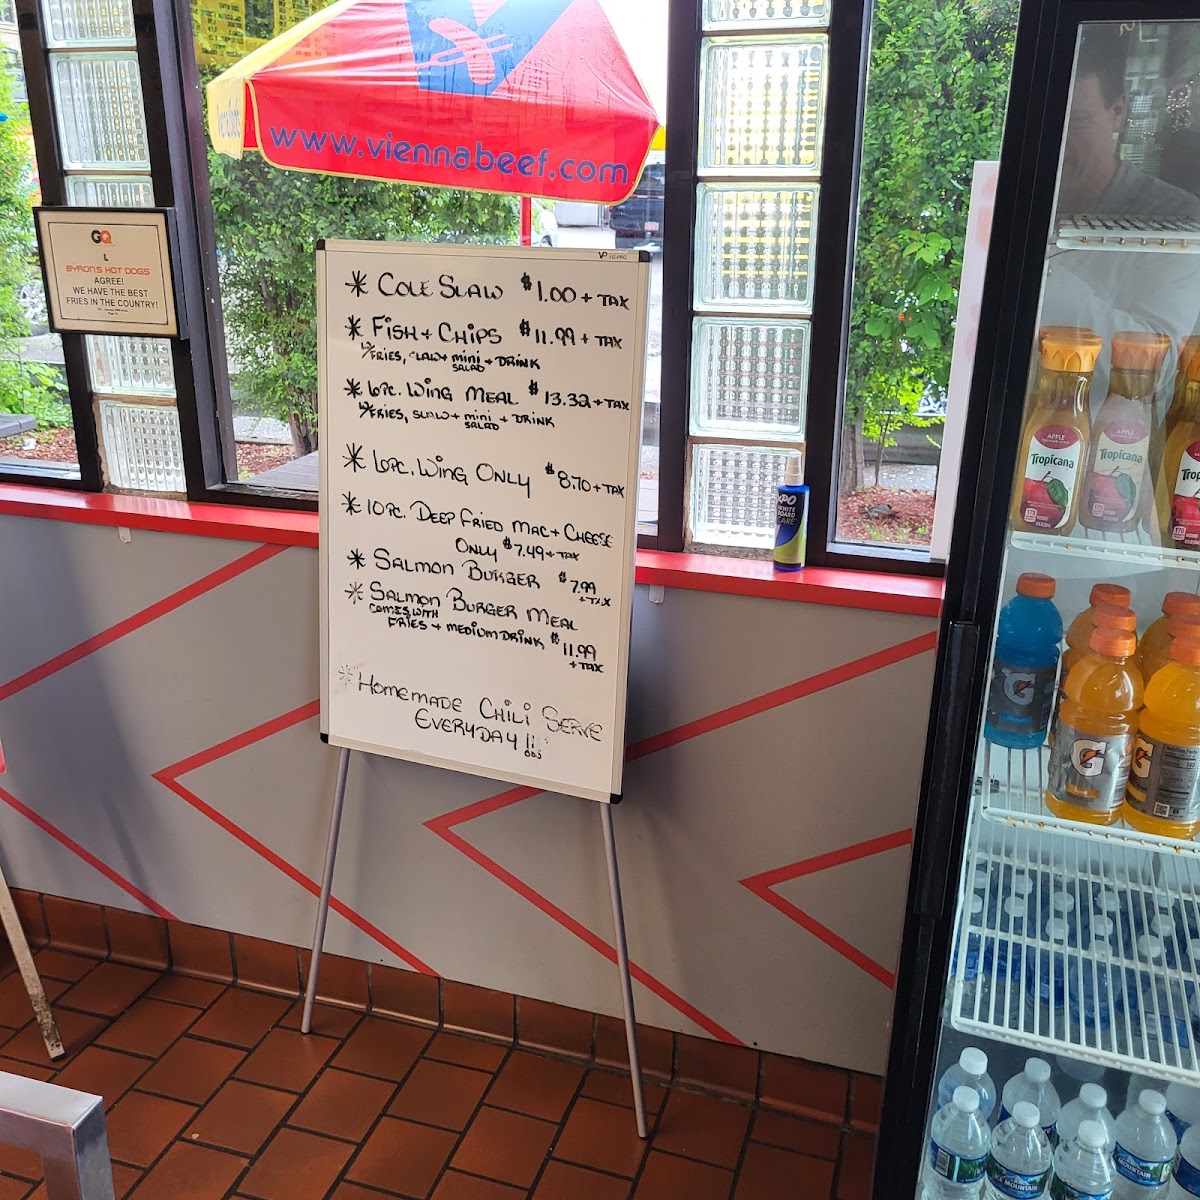 www.viennabeef.com
GQ
&
BYRON'S HOT DOGS
AGREE!
WE HAVE THE BEST
FRIES IN THE COUNTRY!
* COLE SLAW $1.00 + TAX
* FISH + CHIPS $11.99 + TAX
W/ FRIES, SLAW + mini SALAD + DRINK
* 6PC. WING MEAL $13.32 + TAX
W/ FRIES, SLAW + mini SALAD + DRINK
* 6PC. WING ONLY $8.70 + TAX
* 10PC. DEEP FRIED MAC + CHEESE
ONLY $7.49 + TAX
* SALMON BURGER $7.99
+ TAX
* SALMON BURGER MEAL
COMES WITH
FRIES + MEDIUM DRINK $11.99
+ TAX
* HOMEMADE CHILI SERVE
EVERYDAY !!
EXPO
WHITE
BOARD
CARE
APPLE
Tropicana
APPLE
Tropicana
G
G
G